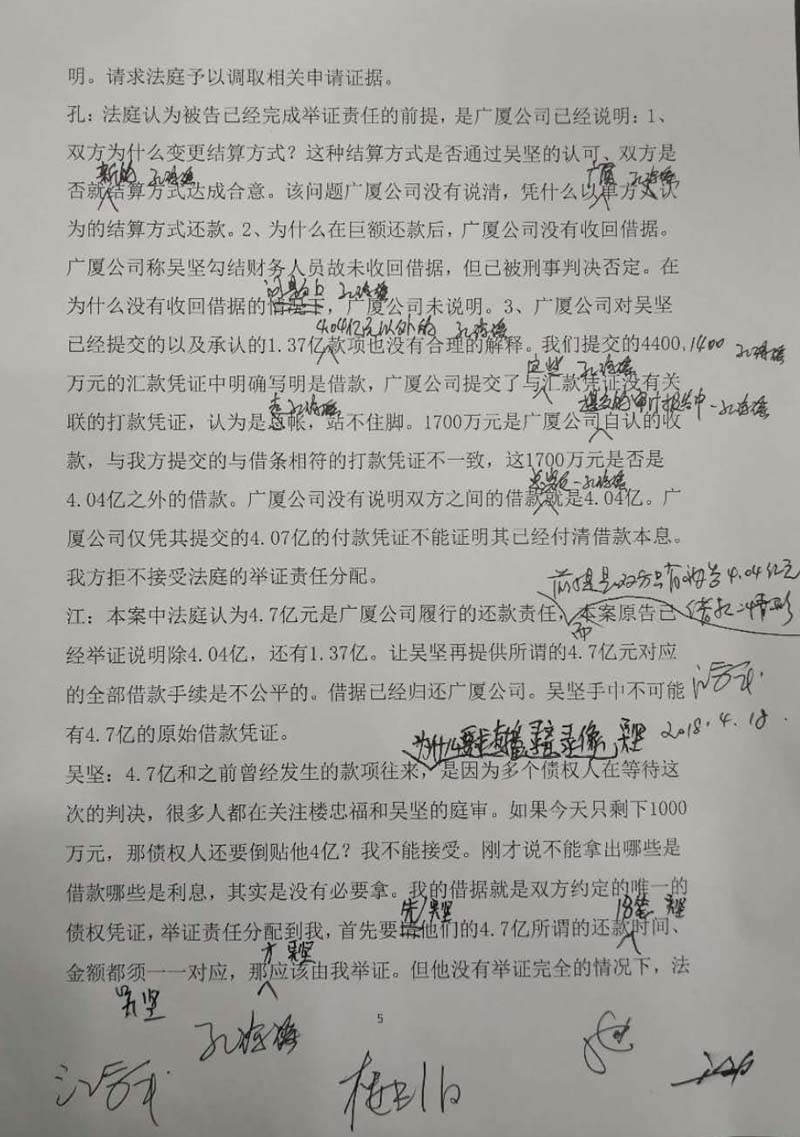 明。请求法庭予以调取相关申请证据。
孔：法庭认为被告已经完成举证责任的前提，是广厦公司已经说明：1、
双方为什么变更结算方式？这种结算方式是否通过吴坚的认可、双方是
新的
广厦
否就结算方式达成合意。该问题广厦公司没有说清，凭什么以单方又认
为的结算方式还款。2、为什么在巨额还款后，广厦公司没有收回借据。
广厦公司称吴坚勾结财务人员故未收回借据，但已被刑事判决否定。在
问题上
为什么没有收回借据的情况下，广厦公司未说明。3、广厦公司对吴坚
4.04亿元以外的
已经提交的以及承认的1.37亿款项也没有合理的解释。我们提交的4400、1400
这些
万元的汇款凭证中明确写明是借款，广厦公司提交了与汇款凭证没有关
提交的审计报告中
联的打款凭证，认为是总帐，站不住脚。1700万元是广厦公司自认的收
款，与我方提交的与借条相符的打款凭证不一致，这1700万元是否是
4.04亿之外的借款。广厦公司没有说明双方之间的借款就是4.04亿。广
厦公司仅凭其提交的4.07亿的付款凭证不能证明其已经付清借款本息。
我方拒不接受法庭的举证责任分配。
前提是双方只有4.04亿元
借款
江：本案中法庭认为4.7亿元是广厦公司履行的还款责任，本案原告已
而
经举证说明除4.04亿，还有1.37亿。让吴坚再提供所谓的4.7亿元对应
的全部借款手续是不公平的。借据已经归还广厦公司。吴坚手中不可能
有4.7亿的原始借款凭证。
2018.4.18.
为什么要录音录像，吴坚
吴坚：4.7亿和之前曾经发生的款项往来，是因为多个债权人在等待这
次的判决，很多人都在关注楼忠福和吴坚的庭审。如果今天只剩下1000
万元，那债权人还要倒贴他4亿？我不能接受。刚才说不能拿出哪些是
借款哪些是利息，其实是没有必要拿。我的借据就是双方约定的唯一的
先 吴坚
18笔 吴坚
债权凭证，举证责任分配到我，首先要他们的4.7亿所谓的还款时间、
才 吴坚
金额都须一一对应，那应该由我举证。但他没有举证完全的情况下，法
吴坚
5